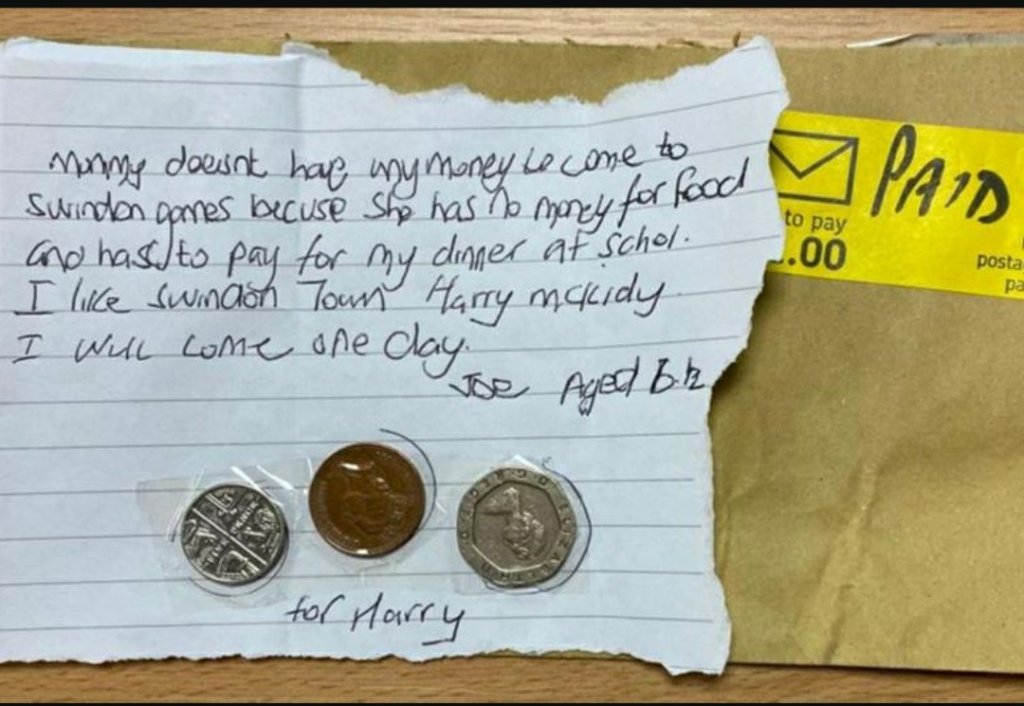 Mummy doesnt have any money to come to
Swindon games becuse she has no money for food
and has to pay for my dinner at schol.
I like Swindon Town Harry mckidy
I will come one day.
JOE Aged 6.½
for Harry
PAID
to pay
.00
posta
pa
FIVE PENCE